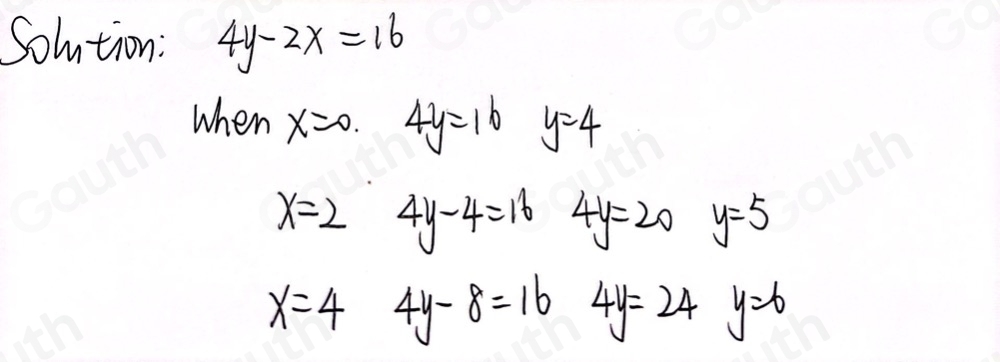 Solution: 4y-2x=16
when x=0. 4y=16 y=4
x=2 4y-4=16 4y=20 y=5
x=4 4y-8=16 4y=24 y=6